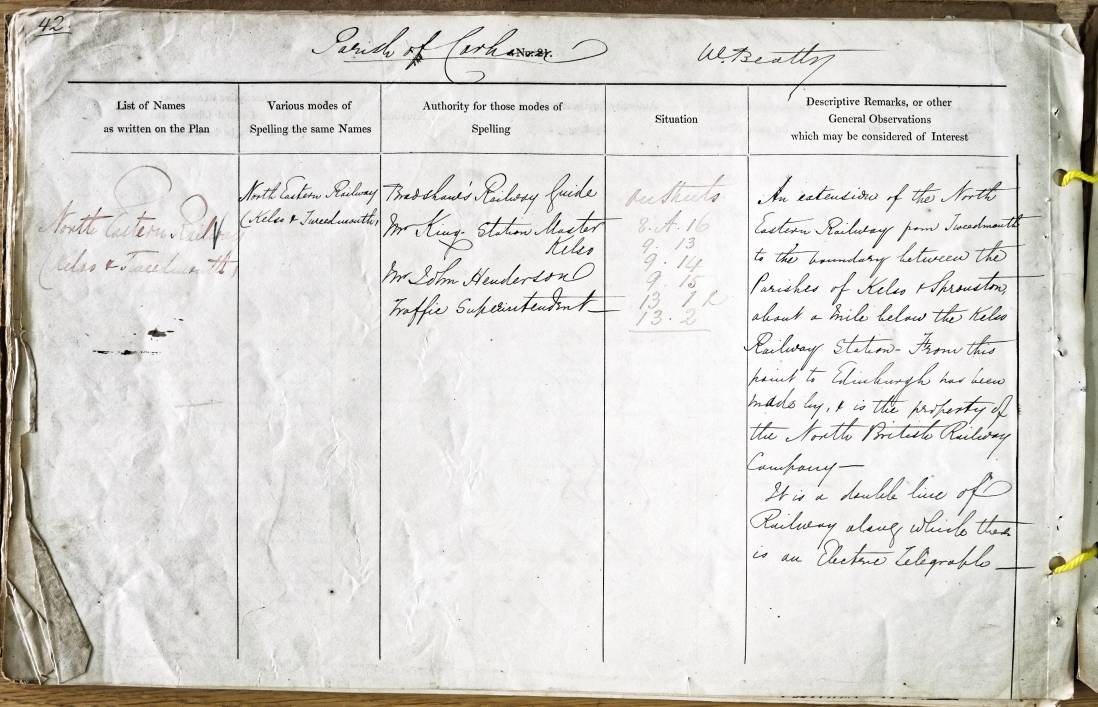 42
Parish of Carham No. 21. W. Beatty
List of Names
as written on the Plan
Various modes of
Spelling the same Names
Authority for those modes of
Spelling
Situation
Descriptive Remarks, or other
General Observations
which may be considered of Interest
North Eastern Railway
(Kelso & Tweedmouth)
North Eastern Railway
(Kelso & Tweedmouth)
Bradshaw's Railway Guide
Mr King - Station Master
Kelso
Mr John Henderson
Traffic Superintendent
8. A. 16
9. 13
9. 14
9. 15
13
13. 2
An extension of the North
Eastern Railway from Tweedmouth
to the boundary between the
Parishes of Kelso & Sprouston,
about a mile below the Kelso
Railway Station - From this
point to Edinburgh has been
made by, & is the property of
the North British Railway
Company —
It is a double line of
Railway along which there
is an Electric Telegraph —